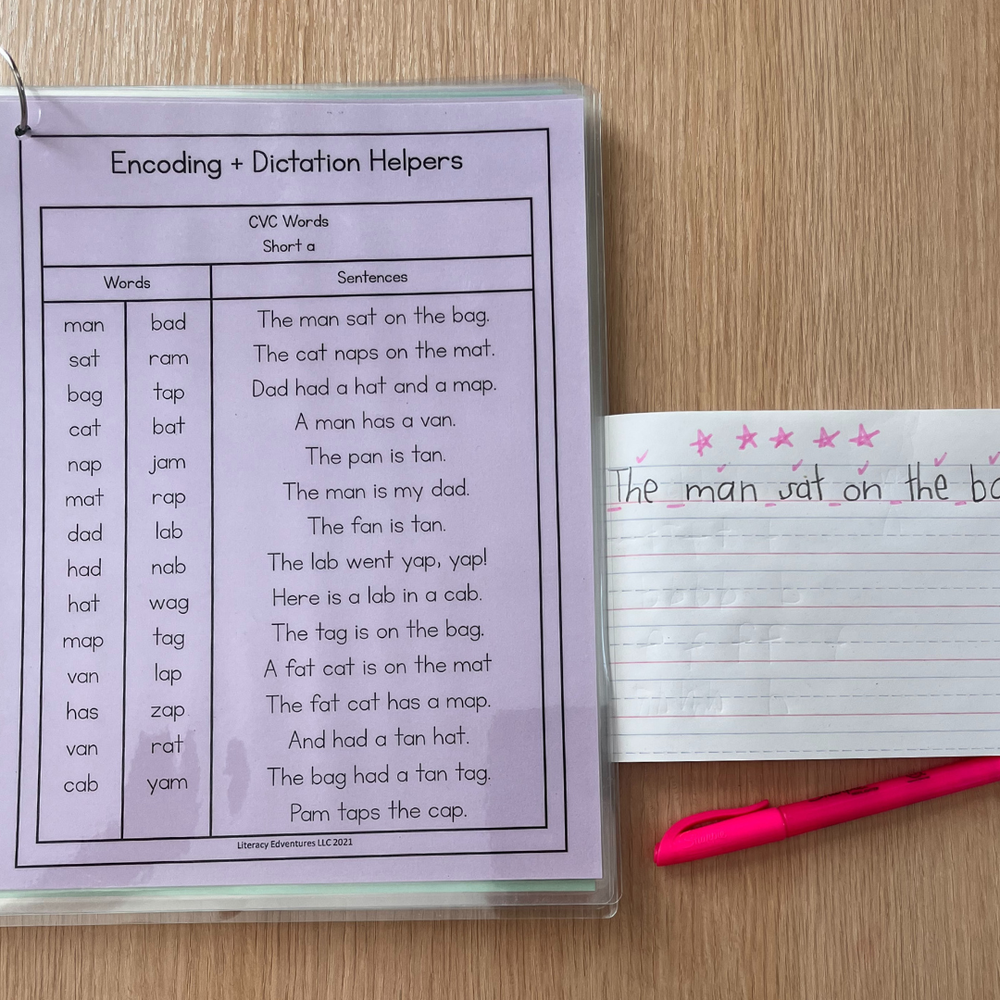 Encoding + Dictation Helpers
CVC Words
Short a
Words
Sentences
man bad The man sat on the bag.
sat ram The cat naps on the mat.
bag tap Dad had a hat and a map.
cat bat A man has a van.
nap jam The pan is tan.
mat rap The man is my dad.
dad lab The fan is tan.
had nab The lab went yap, yap!
hat wag Here is a lab in a cab.
map tag The tag is on the bag.
van lap A fat cat is on the mat
has zap The fat cat has a map.
van rat And had a tan hat.
cab yam The bag had a tan tag.
Pam taps the cap.
Literacy Edventures LLC 2021
The man sat on the